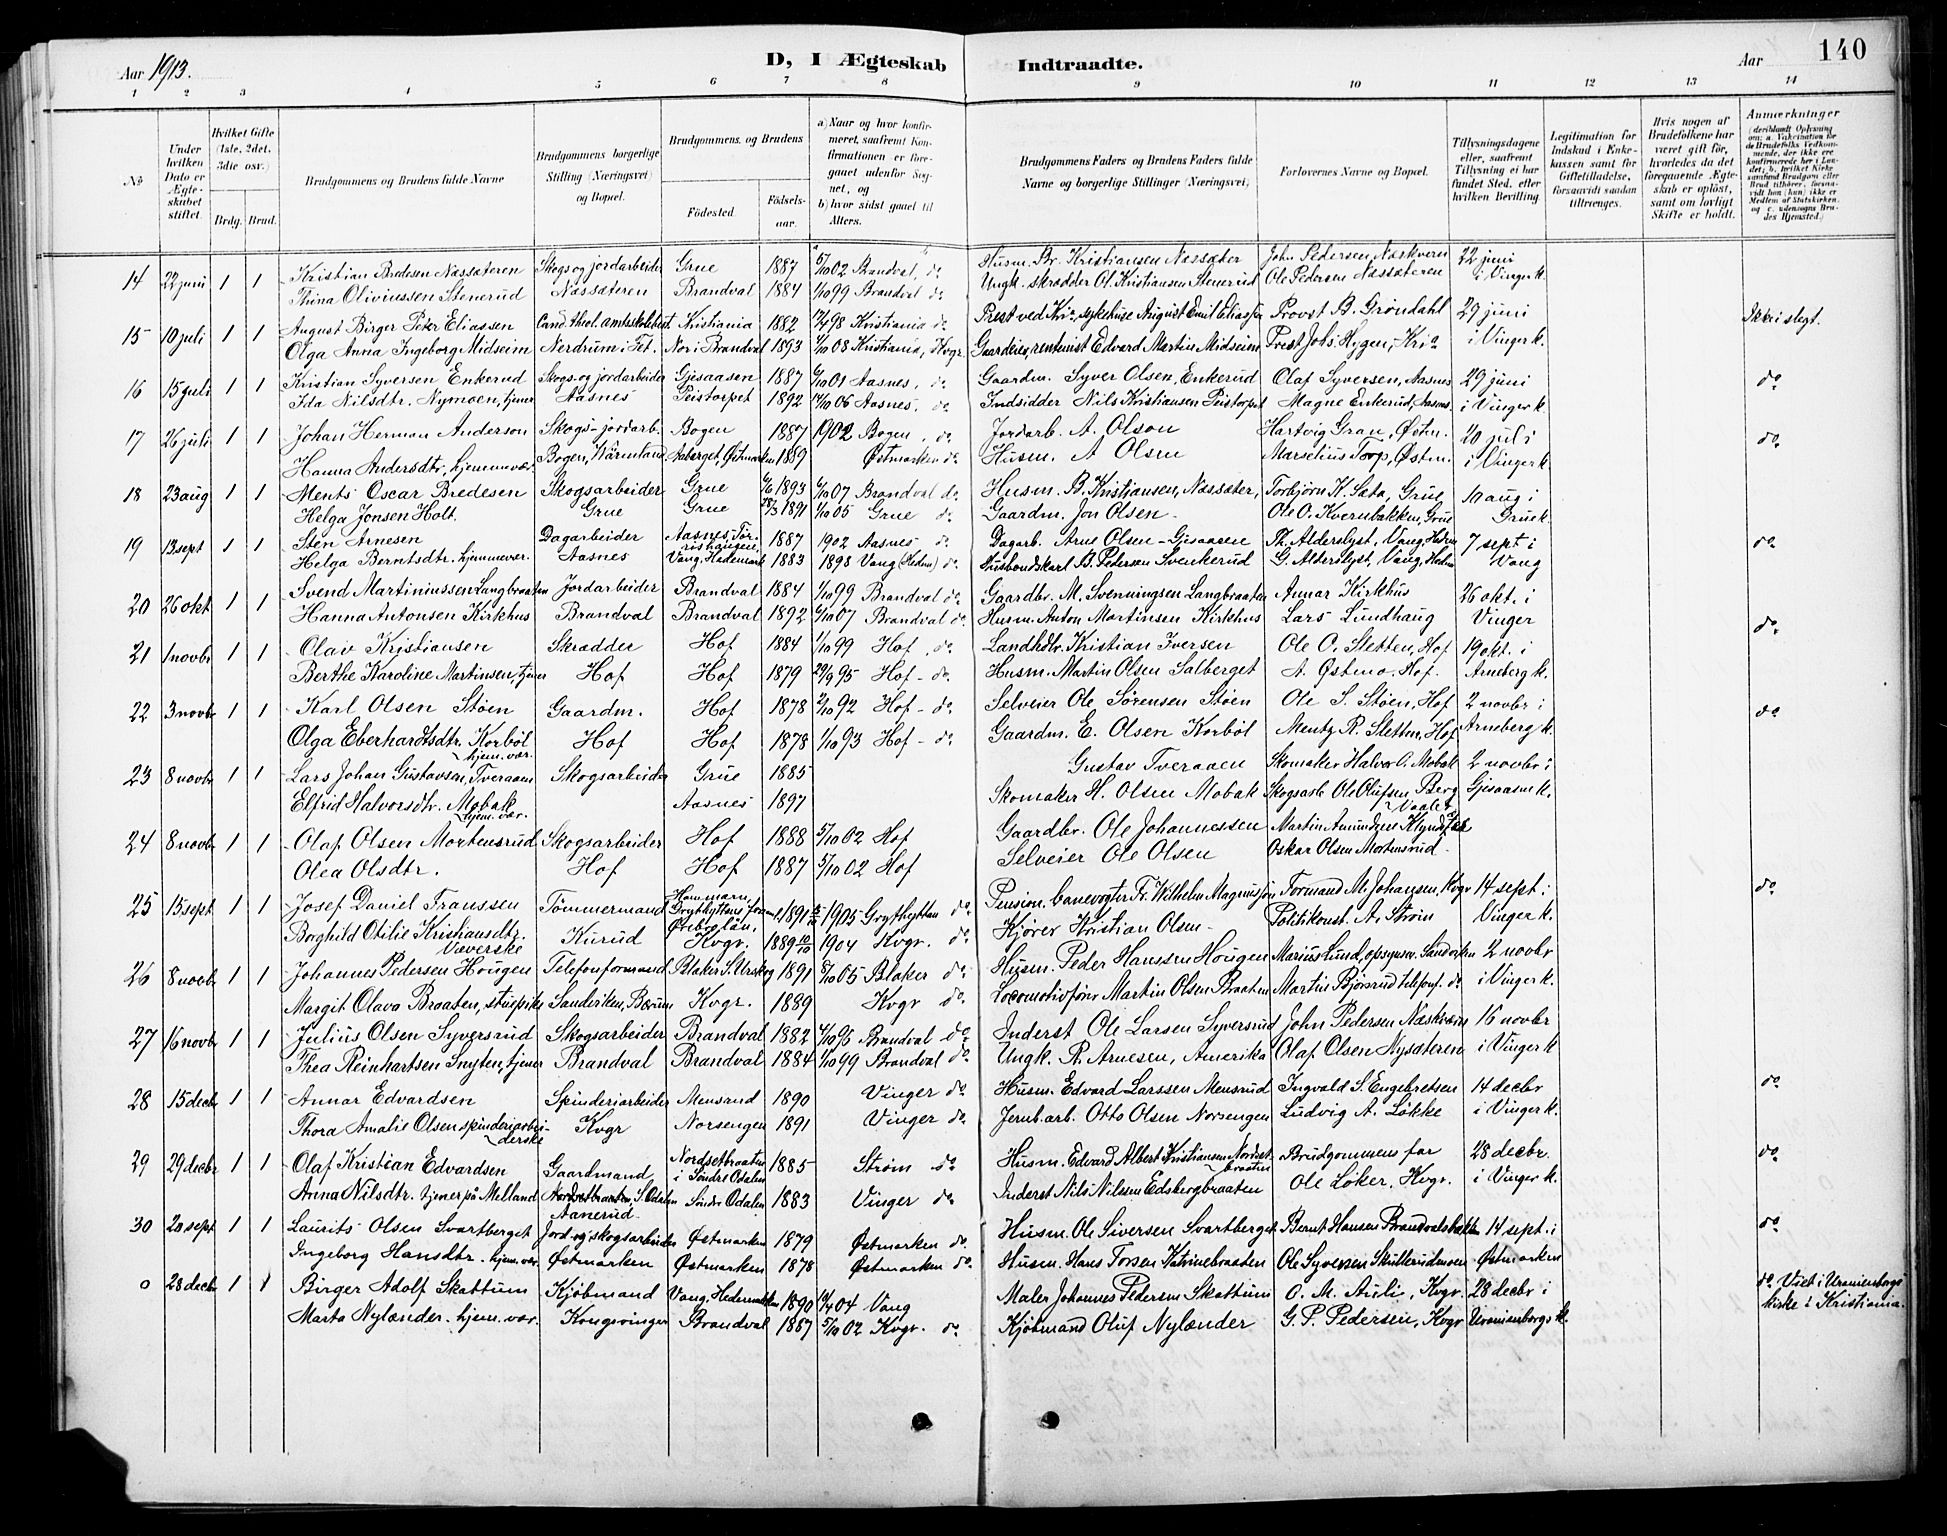 Aar 1913.
D, I Ægteskab Indtraadte.
Aar
140
1 2 3 4 5 6 7 8 9 10 11 12 13 14
No
Under hvilken Dato er Ægteskabet stiftet.
Hvilket Gifte (1ste, 2det, 3die osv.)
Brdg. Brud.
Brudgommens og Brudens fulde Navne
Brudgommens borgerlige Stilling (Næringsvei) og Bopæl.
Brudgommens og Brudens
Fødested. Fødselsaar.
a) Naar og hvor konfirmeret, saafremt Konfirmationen er foregaaet udenfor Sognet, og
b) hvor sidst gaaet til Alters.
Brudgommens Faders og Brudens Faders fulde Navne og borgerlige Stillinger (Næringsvei)
Forlovernes Navne og Bopæl.
Tillysningsdagene eller, saafremt Tillysning ei har fundet Sted, efter hvilken Bevilling.
Legitimation for Indskud i Enkekassen samt for Giftetilladelse, forsaavidt saadan tiltrænges.
Hvis nogen af Brudefolkene har været gift før, hvorledes da det foregaaende Ægteskab er opløst, samt om lovligt Skifte er holdt.
Anmerkninger
14 22 juni 1 1 Kristian Bredesen Næssæteren Skogs og jordarbeider Grue 1887 5/10 02 Brandval, do Husm. Br. Kristiansen Næssæter John Pedersen, Næskvern 22 juni
Thina Oliviussen Stenerud Næssæteren Brandval 1884 1/10 99 Brandval do Ungk. skrædder Ol. Kristiansen Stenerud Ole Pedersen Næssæteren i Vinger k.
15 10 juli 1 1 August Birger Peter Eliassen Cand. theol. amtsskolebest. Kristiania 1882 98 Kristiania do Prest ved Kr.a sykehuse August Emil Eliassen Provst B. Grøndahl 29 juni Ikke i slegt.
Olga Anna Ingeborg Midseim Nerdrum i Fet. Nor i Brandval 1893 1/10 08 Kristiania, Kvgr. Gaardeier, rentenist Edvard Martin Midseim Prest Johs. Hygen, Kr.a i Vinger k.
16 15 juli 1 1 Kristian Syversen Enkerud Skogs- og jordarbeider Gjesaasen 1887 01 Aasnes, do Gaardm. Syver Olsen, Enkerud Olaf Syversen, Aasnes 29 juni do
Ida Nilsdtr. Nymoen, tjener Aasnes Peistorpet 1892 06 Aasnes, do Indsidder Nils Kristiansen Peistorpet Magne Enkerud, Aasnes. i Vinger k.
17 26 juli 1 1 Johan Herman Anderson Skogs- jordarb. Bogen 1887 1902 Bogen, do Jordarb. A. Olson Hartvig Gran, Østm. 20 juli do
Hanna Andersdtr., hjemmevær. Bogen, Wärmland Aaberget, Østmarken 1889 Østmarken do Husm. A Olsen Marselius Torp, Østm. i Vinger k.
18 23 aug 1 1 Ments Oscar Bredesen Skogsarbeider Grue 1893 07 Brandval do Husm. B. Kristiansen, Næssæter, Torbjørn K. Sæta, Grue 10 aug i
Helga Jonsen Holt. Grue Grue 1891 05 Grue do Gaardm. Jon Olsen Ole O. Kvernbakken, Grue Grue k.
19 13 sept 1 1 Sten Arnesen Dagarbeider Aasnes, 1887 1902 Aasnes do Dagarb. Arne Olsen - Gjesaasen Th. Alderslyst, Vang, Hedm 7 sept i do
Helga Berntsdtr., hjemmevær. Aasnes Vang, Hedemark 1883 1898 Vang (Hedm) do Husbondskarl B. Pedersen Svenkerud G. Alderslyst, Vang, Hedm Vang
20 26 okt 1 1 Svend Martiniussen Langbraaten Jordarbeider Brandval 1884 1/10 99 Brandval do Gaardbr. M. Svenningsen Langbraaten Annar Kirkhus 26 okt. i
Hanna Antonsen Kirkhus Brandval Brandval 1892 07 Brandval do Husm. Anton Martinsen Kirkhus Lars Lundhaug Vinger do
21 1 novbr 1 1 Olav Kristiansen Skrædder Hof 1884 1/10 99 Hof, do Landhdlr. Kristian Iversen Ole O. Sletten, Hof 19 okt. i
Berthe Karoline Martinsen, tjener Hof Hof 1879 29/9 95 Hof - do Husm. Martin Olsen Salberget A. Østmo, Hof. Arneberg k.
22 3 novbr 1 1 Karl Olsen Støen Gaardm. Hof 1878 2/10 92 Hof - do Selveier Ole Sørensen Støen Ole S. Støen, Hof 2 novbr i do
Olga Eberhardtsdtr. Korbøl hjem. vær. Hof Hof 1878 1/10 93 Hof - do Gaardm. E. Olsen Korbøl Mentz R. Sletten, Hof Arneberg k.
23 8 novbr 1 1 Lars Johan Gustavsen, Tveraaen Skogsarbeider Grue 1885 Gustav Tveraaen Skomaker Halvor O. Mobak 2 novbr i
Elfrid Halvorsdtr. Mobak hjem. vær. Aasnes 1897 Skomaker H. Olsen Mobak Skogsarb Ole Olufsen Berg Vaaler Gjesaasen k.
24 8 novb. 1 1 Olaf Olsen Mortensrud Skogsarbeider Hof 1888 5/10 02 Hof Gaardbr. Ole Johannessen Martin Amundsen
Olea Olsdtr. Hof Hof 1887 5/10 02 Hof Selveier Ole Olsen Oskar Olsen Mortensrud
25 15 sept 1 1 Josef Daniel Franssen Tømmermand Hammarn, Grythyttans Örebro län. 1891 1905 Grythyttan do Pension. banevogter Fr. Wilhelm Magnusson Formand M. Johansen, Kvgr 14 sept. i do
Borghild Otilie Kristiansdtr. Væverske Kurud Kvgr. 1889 10/10 1904 Kvgr. do Kjører Kristian Olsen Politikonst. A. Strøm Vinger k.
26 8 novbr 1 1 Johannes Pedersen Hougen Telefonformand Blaker S. Urskog 1891 05 Blaker do Husm. Peder Hanssen Hougen Marius Lund, opsynsm. Sandviken 2 novbr
Margit Olava Braaten, stuepike Sandviken, Bærum Kvgr. 1889 Kvgr do Locomotivfører Martin Olsen Braaten Martin Bjørsrud telefonf. do i Vinger k.
27 16 novbr 1 1 Julius Olsen Syversrud Skogsarbeider Brandval 1882 95 Brandval do Inderst Ole Larsen Syversrud John Pedersen Næskvern 16 novbr
Thea Reinhartsen Snyten, tjener Brandval Brandval 1884 1/10 99 Brandval do Ungk. R. Arnesen, Amerika Olaf Olsen Nysæteren i Vinger k
28 15 decbr 1 1 Annar Edvardsen Spinderiarbeider Mensrud 1890 Vinger do Husm. Edvard Larssen Mensrud Ingvald S. Engebretsen 14 decbr do
Thora Amalie Olsen spinderiarbeiderske Kvgr Norsengen 1891 Vinger do Jernb.arb. Otto Olsen Norsengen Ludvig A. Løkke i Vinger k.
29 29 decbr 1 1 Olaf Kristian Edvardsen Gaardmand Nordsetbraaten i Søndre Odalen 1885 Strøm do Husm. Edvard Albert Kristiansen Nordsetbraaten Brudgommens far 28 decbr. do
Anna Nilsdtr. tjener på Melland Nordsetbraaten, S. Odalen Aanerud Søndre Odalen 1883 Vinger do Inderst Nils Nilssen Edsbergbraaten Ole Løker, Kvgr. i Vinger k.
30 20 sept 1 1 Laurits Olsen Svartberget Jord- og skogsarbeider Østmarken 1879 Østmarken do Husm. Ole Siversen Svartberget Bernt Hansen Brandvalsbakken 14 sept. i do
Ingeborg Hansdtr. hjem. vær. Østmarken Østmarken 1878 Østmarken do Husm. Hans Torsen Katrinebraaten Ole Syversen Skulterudmoen Østmarken
o 28 decbr 1 1 Birger Adolf Skattum Kjøbmand Vang, Hedemarken 1890 04 Vang Maler Johannes Pedersen Skattum O. M. Auli, Kvgr. 28 decbr i do Viet i Uranienborgs
Marta Nylænder. hjem. vær. Kongsvinger Brandval 1887 5/10 02 Kvgr. do Kjøbmand Oluf Nylænder G. P. Pedersen, Kvgr Uranienborgs k. kirke i Kristiania.